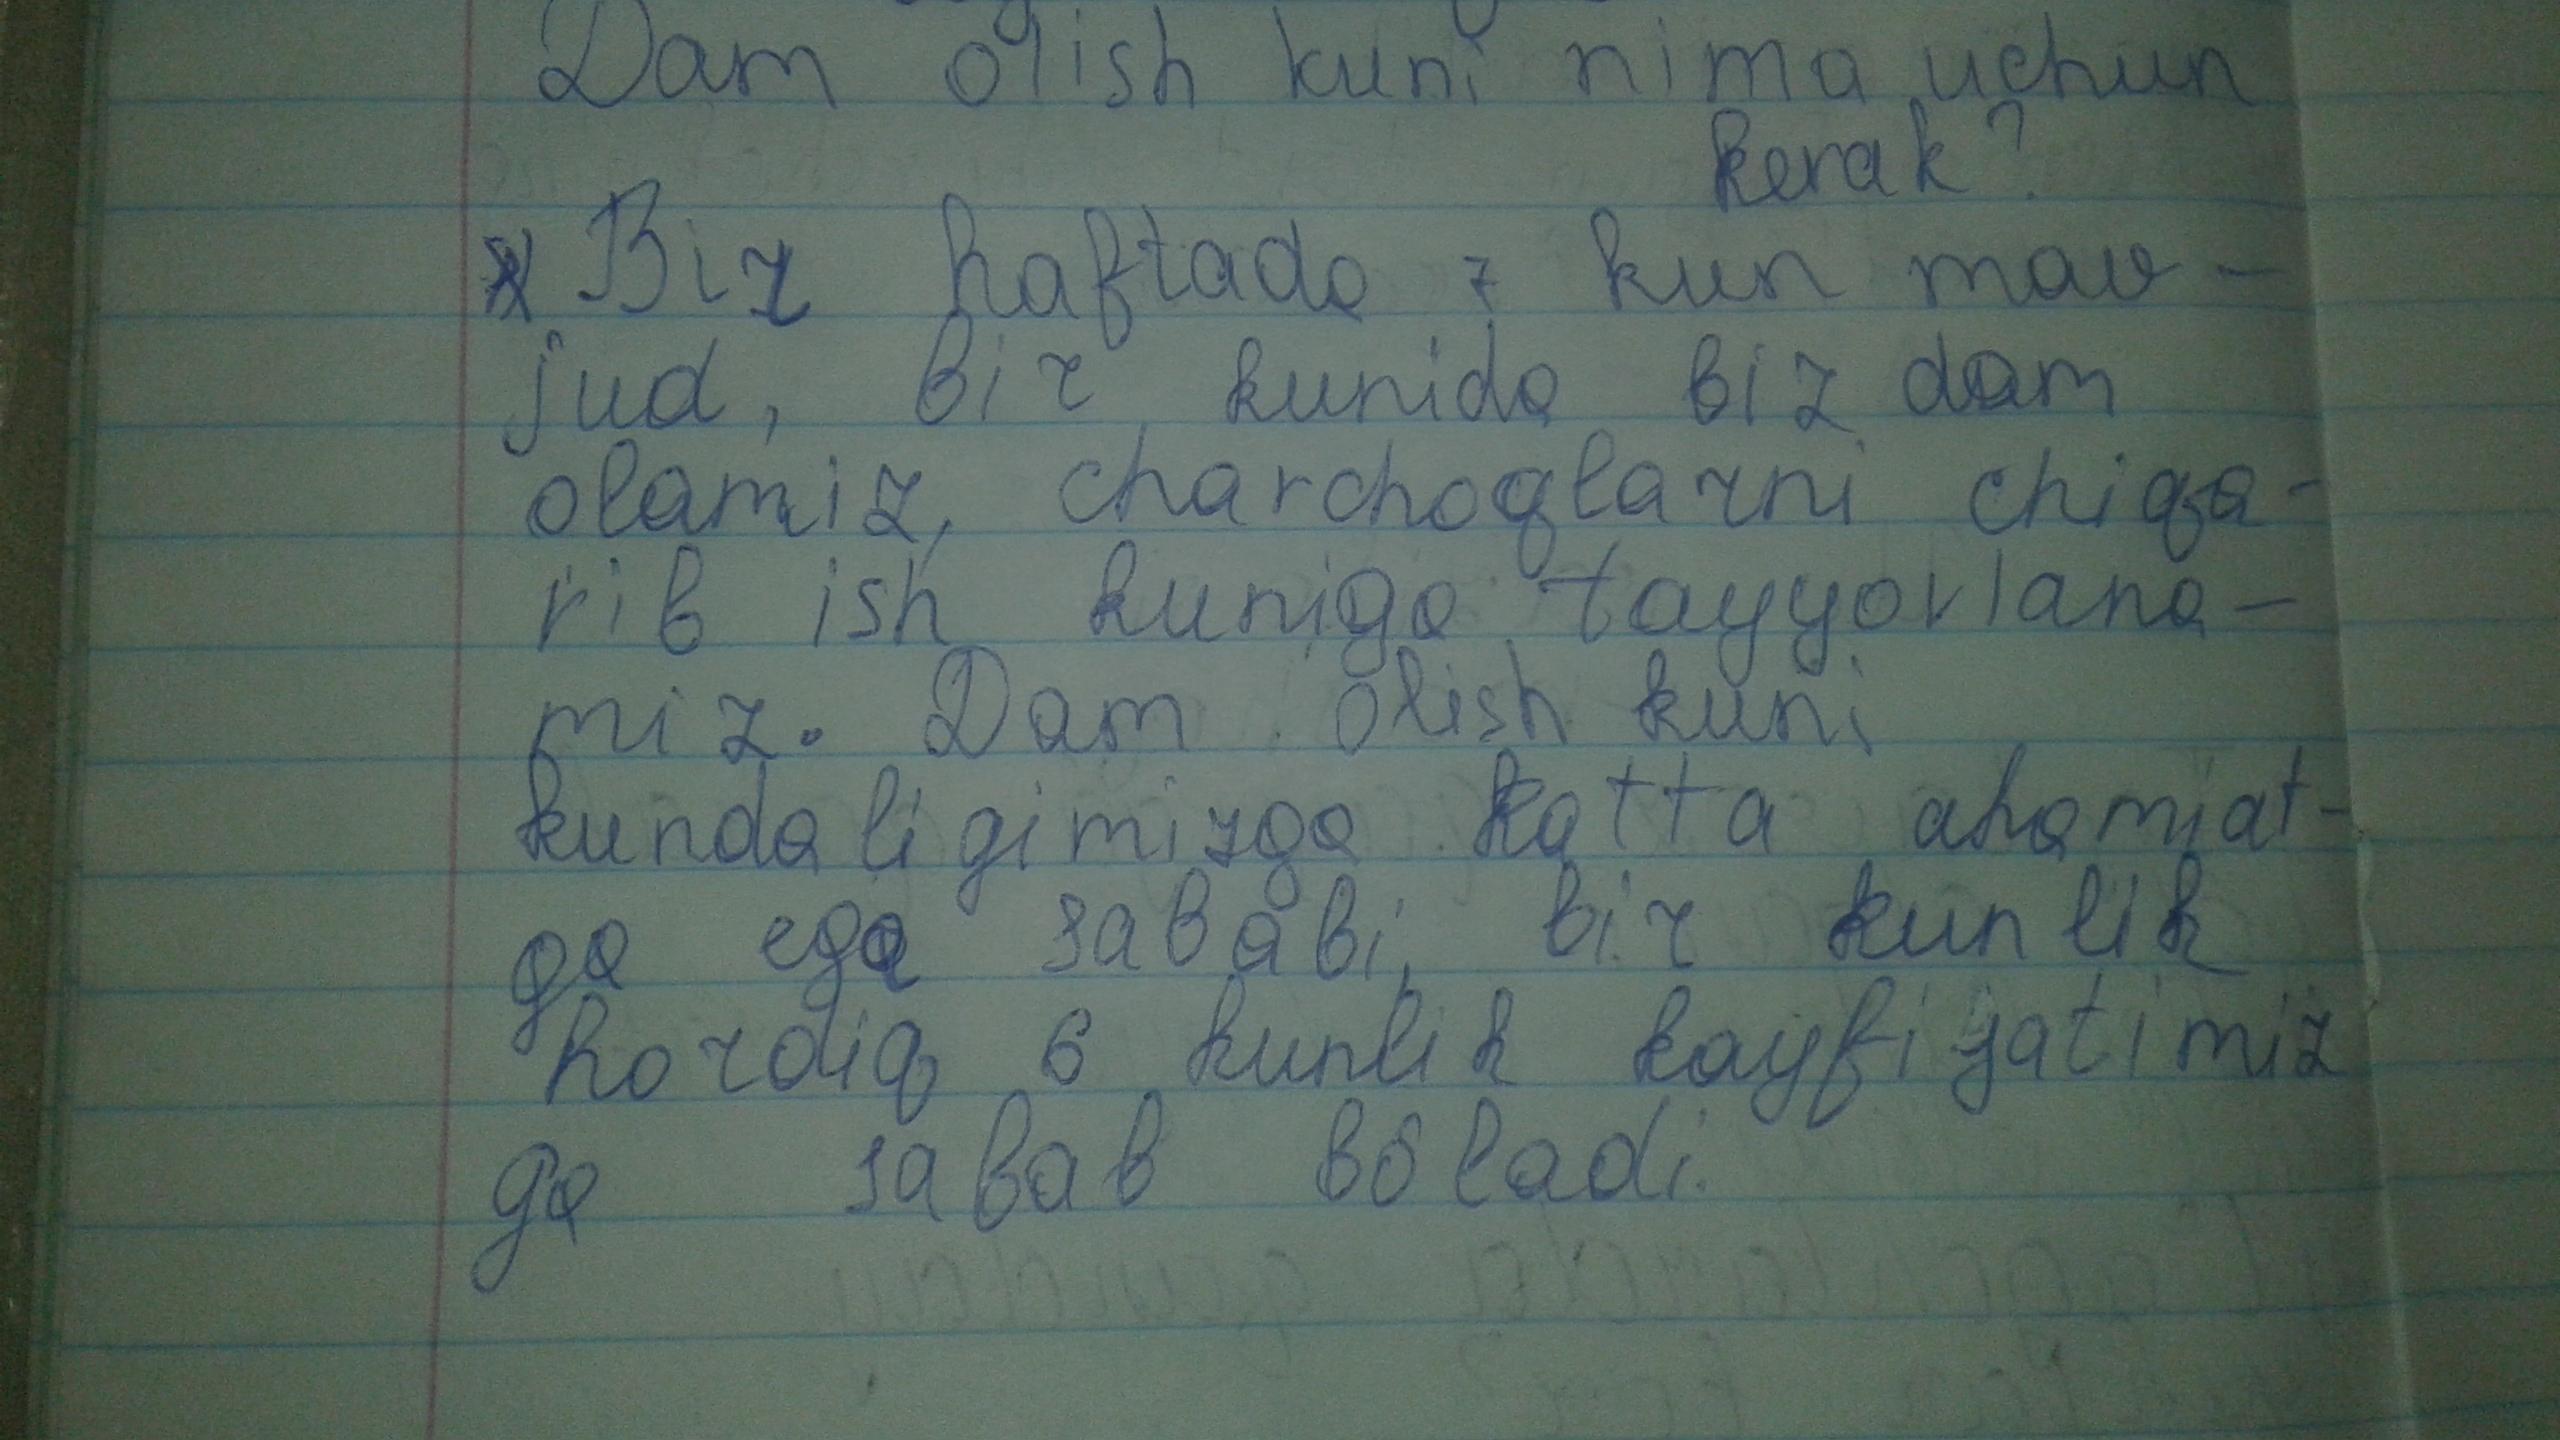 Dam olish kuni nima uchun
kerak?
Biz haftada 7 kun mav-
jud, bir kunida biz dam
olamiz, charchoqlarni chiqa-
rib ish kuniga tayyorlana-
miz. Dam olish kuni
kundaligimizga katta ahamiat-
ga ega sababi, bir kunlik
hordiq 6 kunlik kayfiyatimiz
ga sabab bôladi.